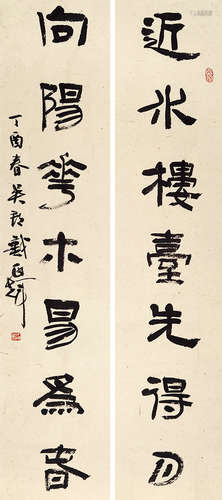 近水樓臺先得月
向陽花木易為春
丁酉春吴郡戴